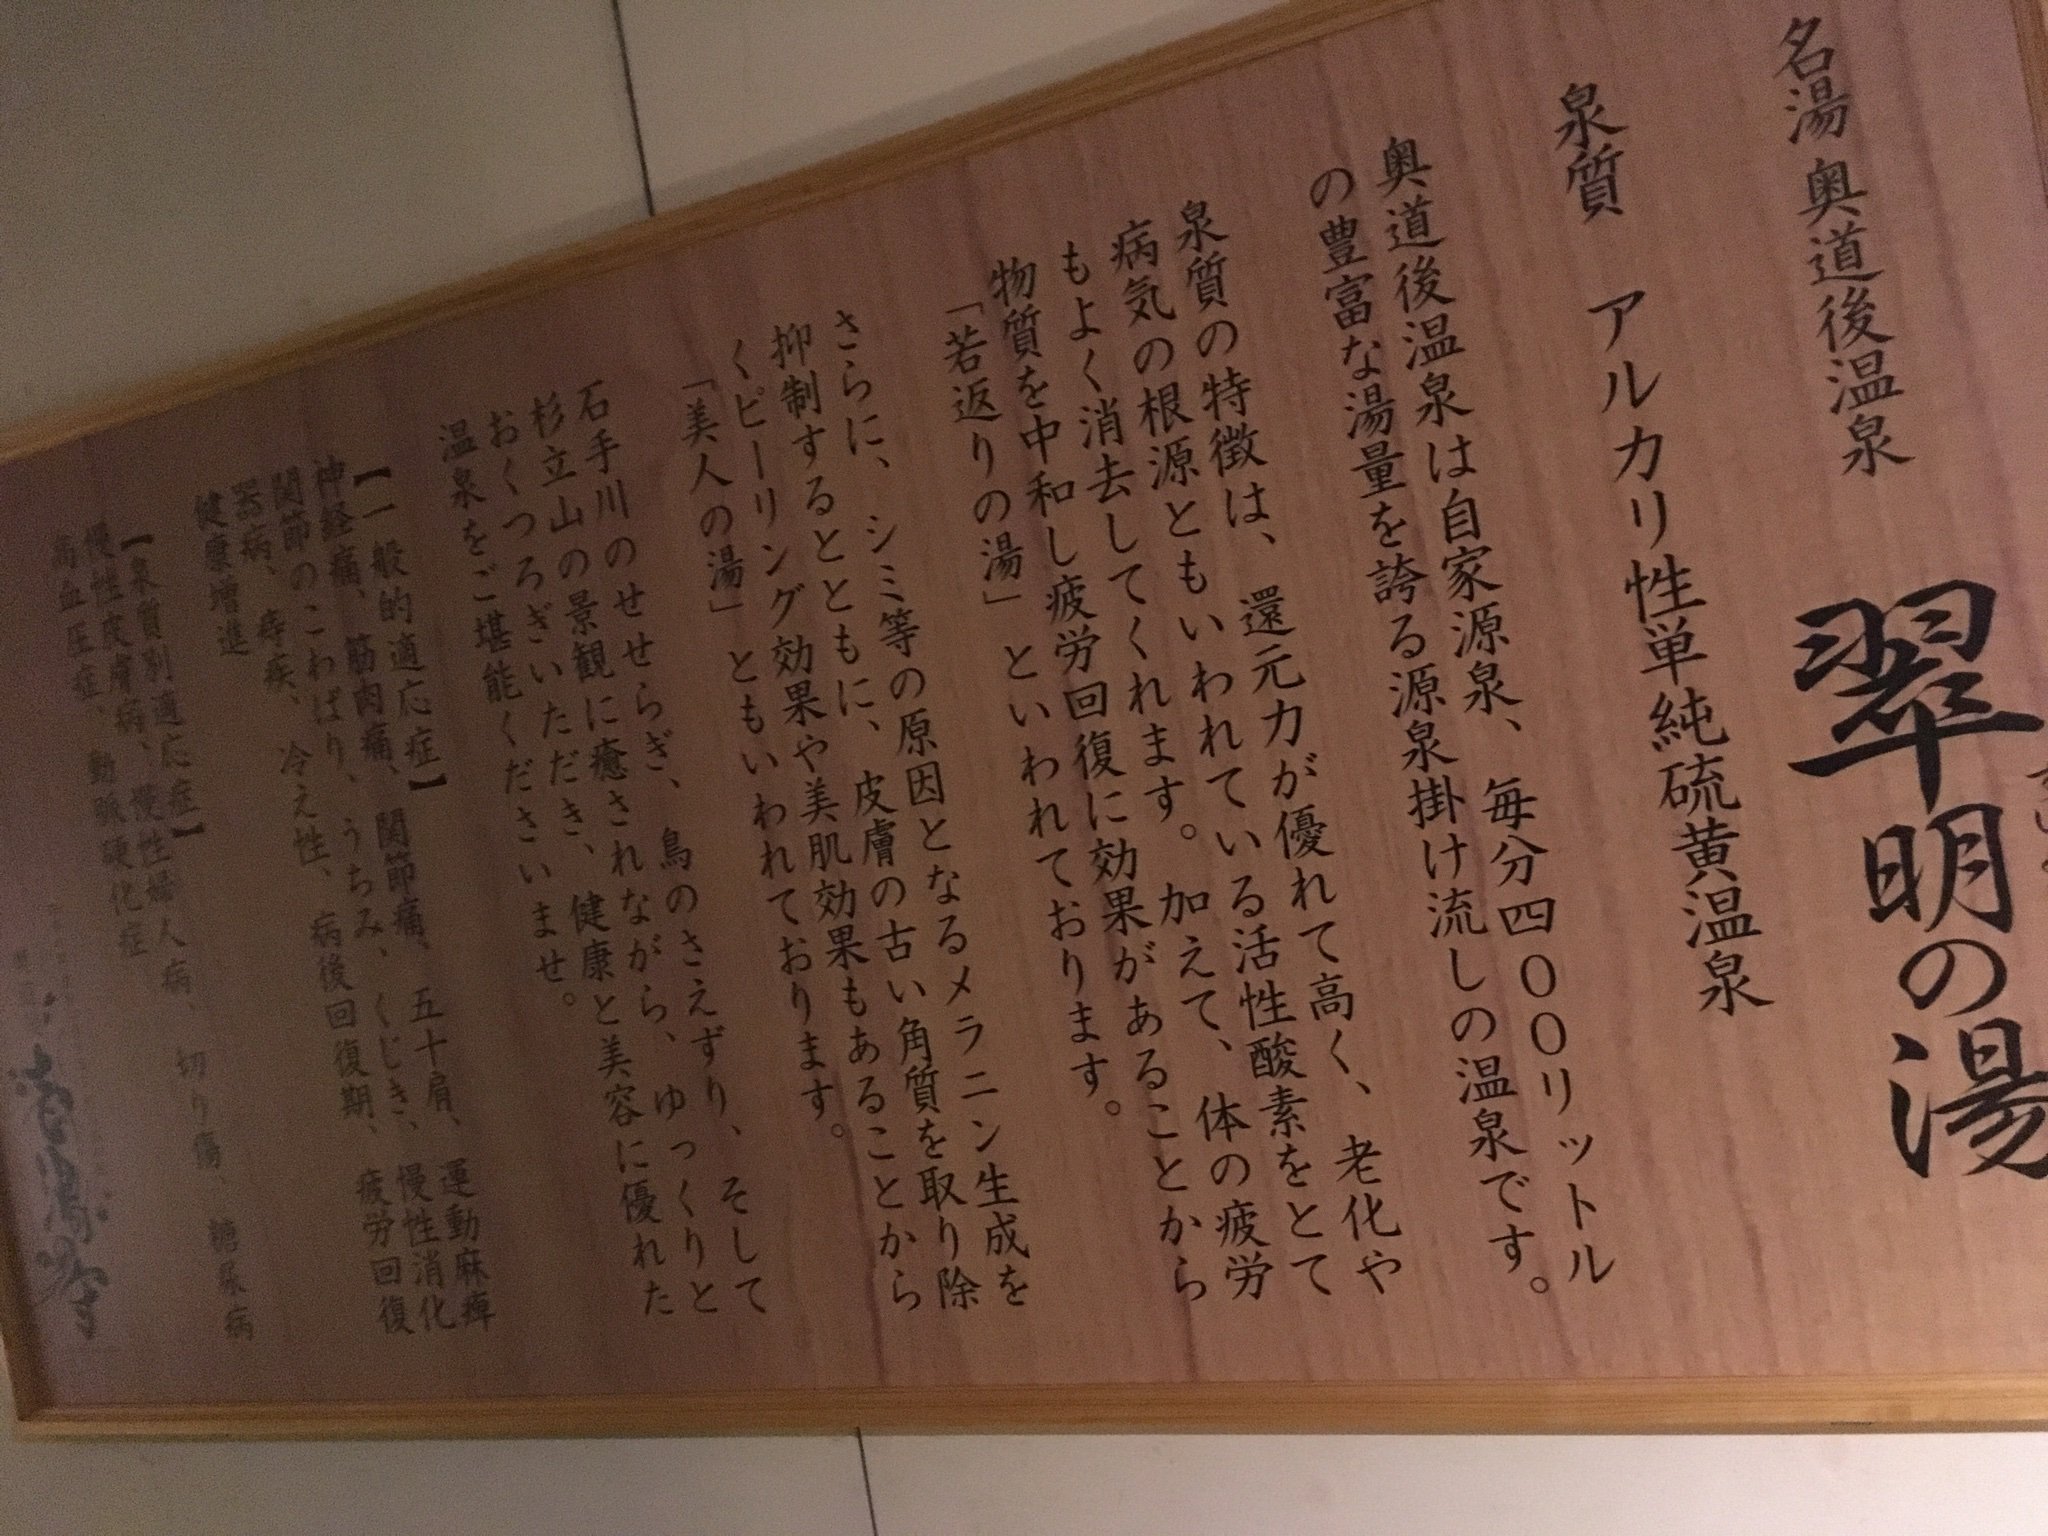 名湯 奥道後温泉
翠明の湯
泉質 アルカリ性単純硫黄温泉
奥道後温泉は自家源泉、毎分四〇〇リットル
の豊富な湯量を誇る源泉掛け流しの温泉です。
泉質の特徴は、還元力が優れて高く、老化や
病気の根源ともいわれている活性酸素をとて
もよく消去してくれます。加えて、体の疲労
物質を中和し疲労回復に効果があることから
「若返りの湯」といわれております。
さらに、シミ等の原因となるメラニン生成を
抑制するとともに、皮膚の古い角質を取り除
くピーリング効果や美肌効果もあることから
「美人の湯」ともいわれております。
石手川のせせらぎ、鳥のさえずり、そして
杉立山の景観に癒されながら、ゆっくりと
おくつろぎいただき、健康と美容に優れた
温泉をご堪能くださいませ。
【一般的適応症】
神経痛、筋肉痛、関節痛、五十肩、運動麻痺
関節のこわばり、うちみ、くじき、慢性消化
器病、痔疾、冷え性、病後回復期、疲労回復
健康増進
【泉質別適応症】
慢性皮膚病、慢性婦人病、切り傷、糖尿病
高血圧症、動脈硬化症